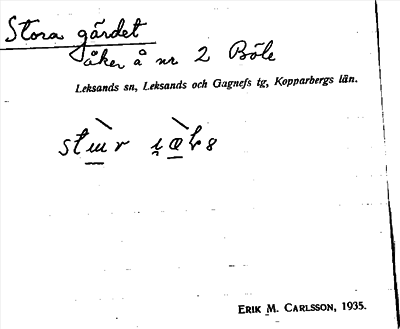 Stora gärdet
åker å nr 2 Böle
Leksands sn, Leksands och Gagnefs tg, Kopparbergs län.
ERIK M. CARLSSON, 1935.